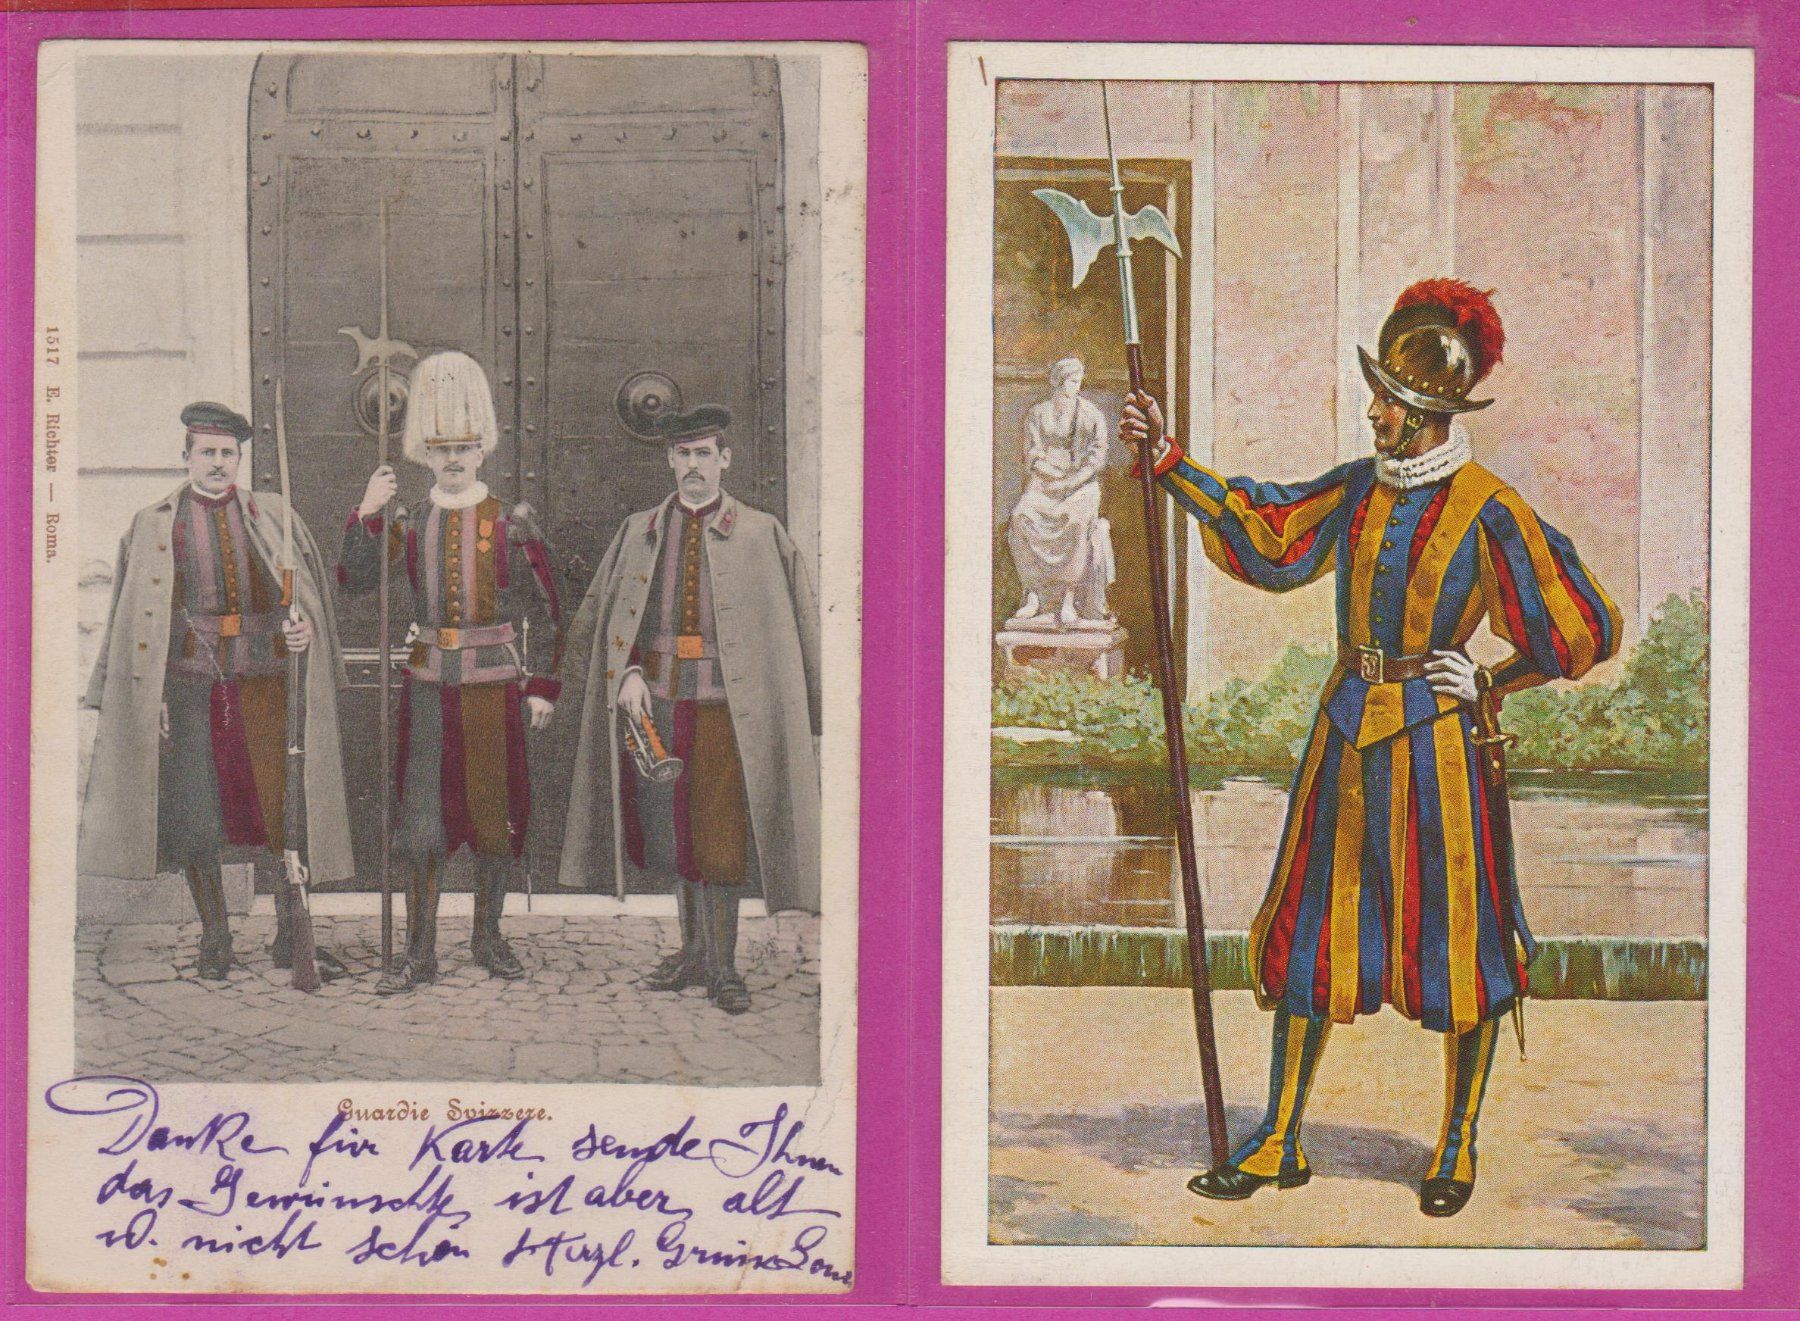 1517 E. Richter — Roma.
Guardie Svizzere.
Danke für Karte sende Ihnen
das Gewünschte ist aber alt
u. nicht schön Herzl.